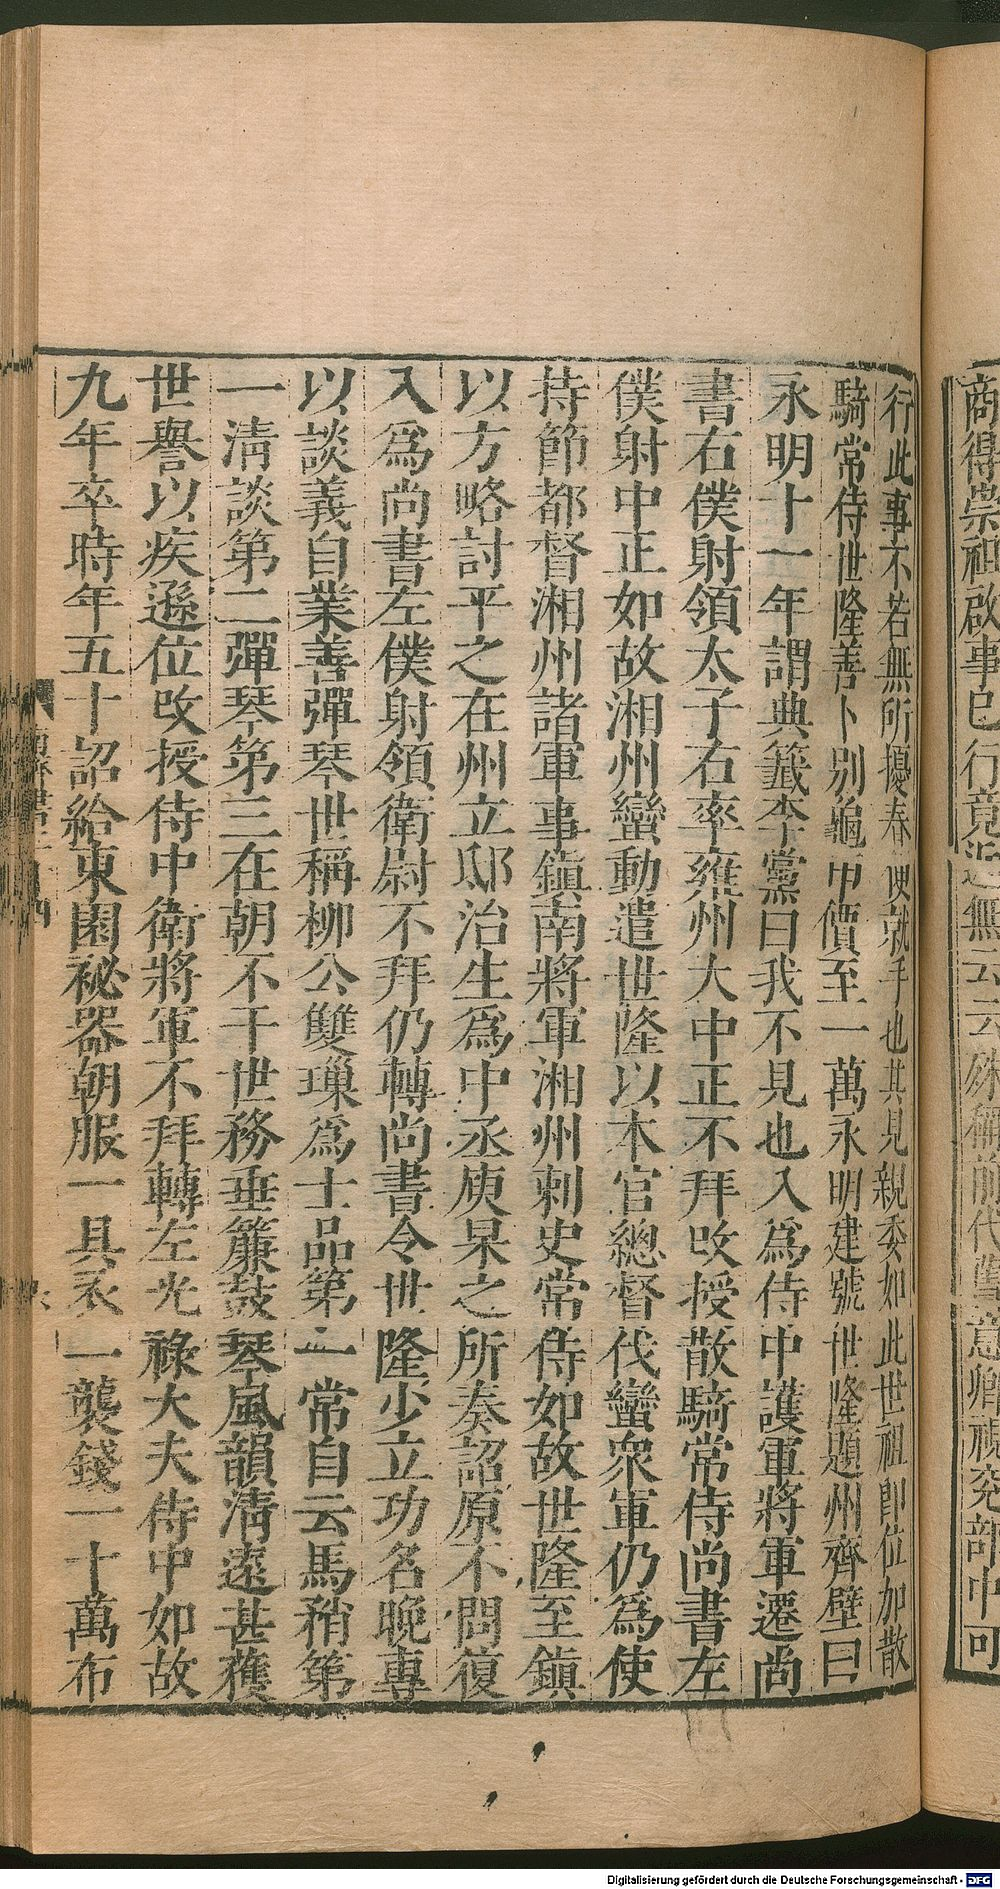 商得崇祖啟事已行竟近無云云殊稱前代舊意卿視兖部中可
行此事不若無所擾春便就手也其見親委如此世祖即位加散
騎常侍世隆善卜別龜甲價至一萬永明建號世隆題州齋壁曰
永明十一年謂典籤李黨曰我不見也入為侍中護軍將軍遷尚
書右僕射領太子右率雍州大中正不拜改授散騎常侍尚書左
僕射中正如故湘州蠻動遣世隆以本官總督伐蠻衆軍仍為使
持節都督湘州諸軍事鎮南將軍湘州刺史常侍如故世隆至鎮
以方略討平之在州立邸治生為中丞庾杲之所奏詔原不問復
入為尚書左僕射領衛尉不拜仍轉尚書令世隆少立功名晚專
以談義自業善彈琴世稱柳公雙璅為士品第一常自云馬矟第
一清談第二彈琴第三在朝不干世務垂簾鼓琴風韻清遠甚獲
世譽以疾遜位改授侍中衛將軍不拜轉左光祿大夫侍中如故
九年卒時年五十詔給東園祕器朝服一具衣一襲錢一十萬布
Digitalisierung gefördert durch die Deutsche Forschungsgemeinschaft - DFG